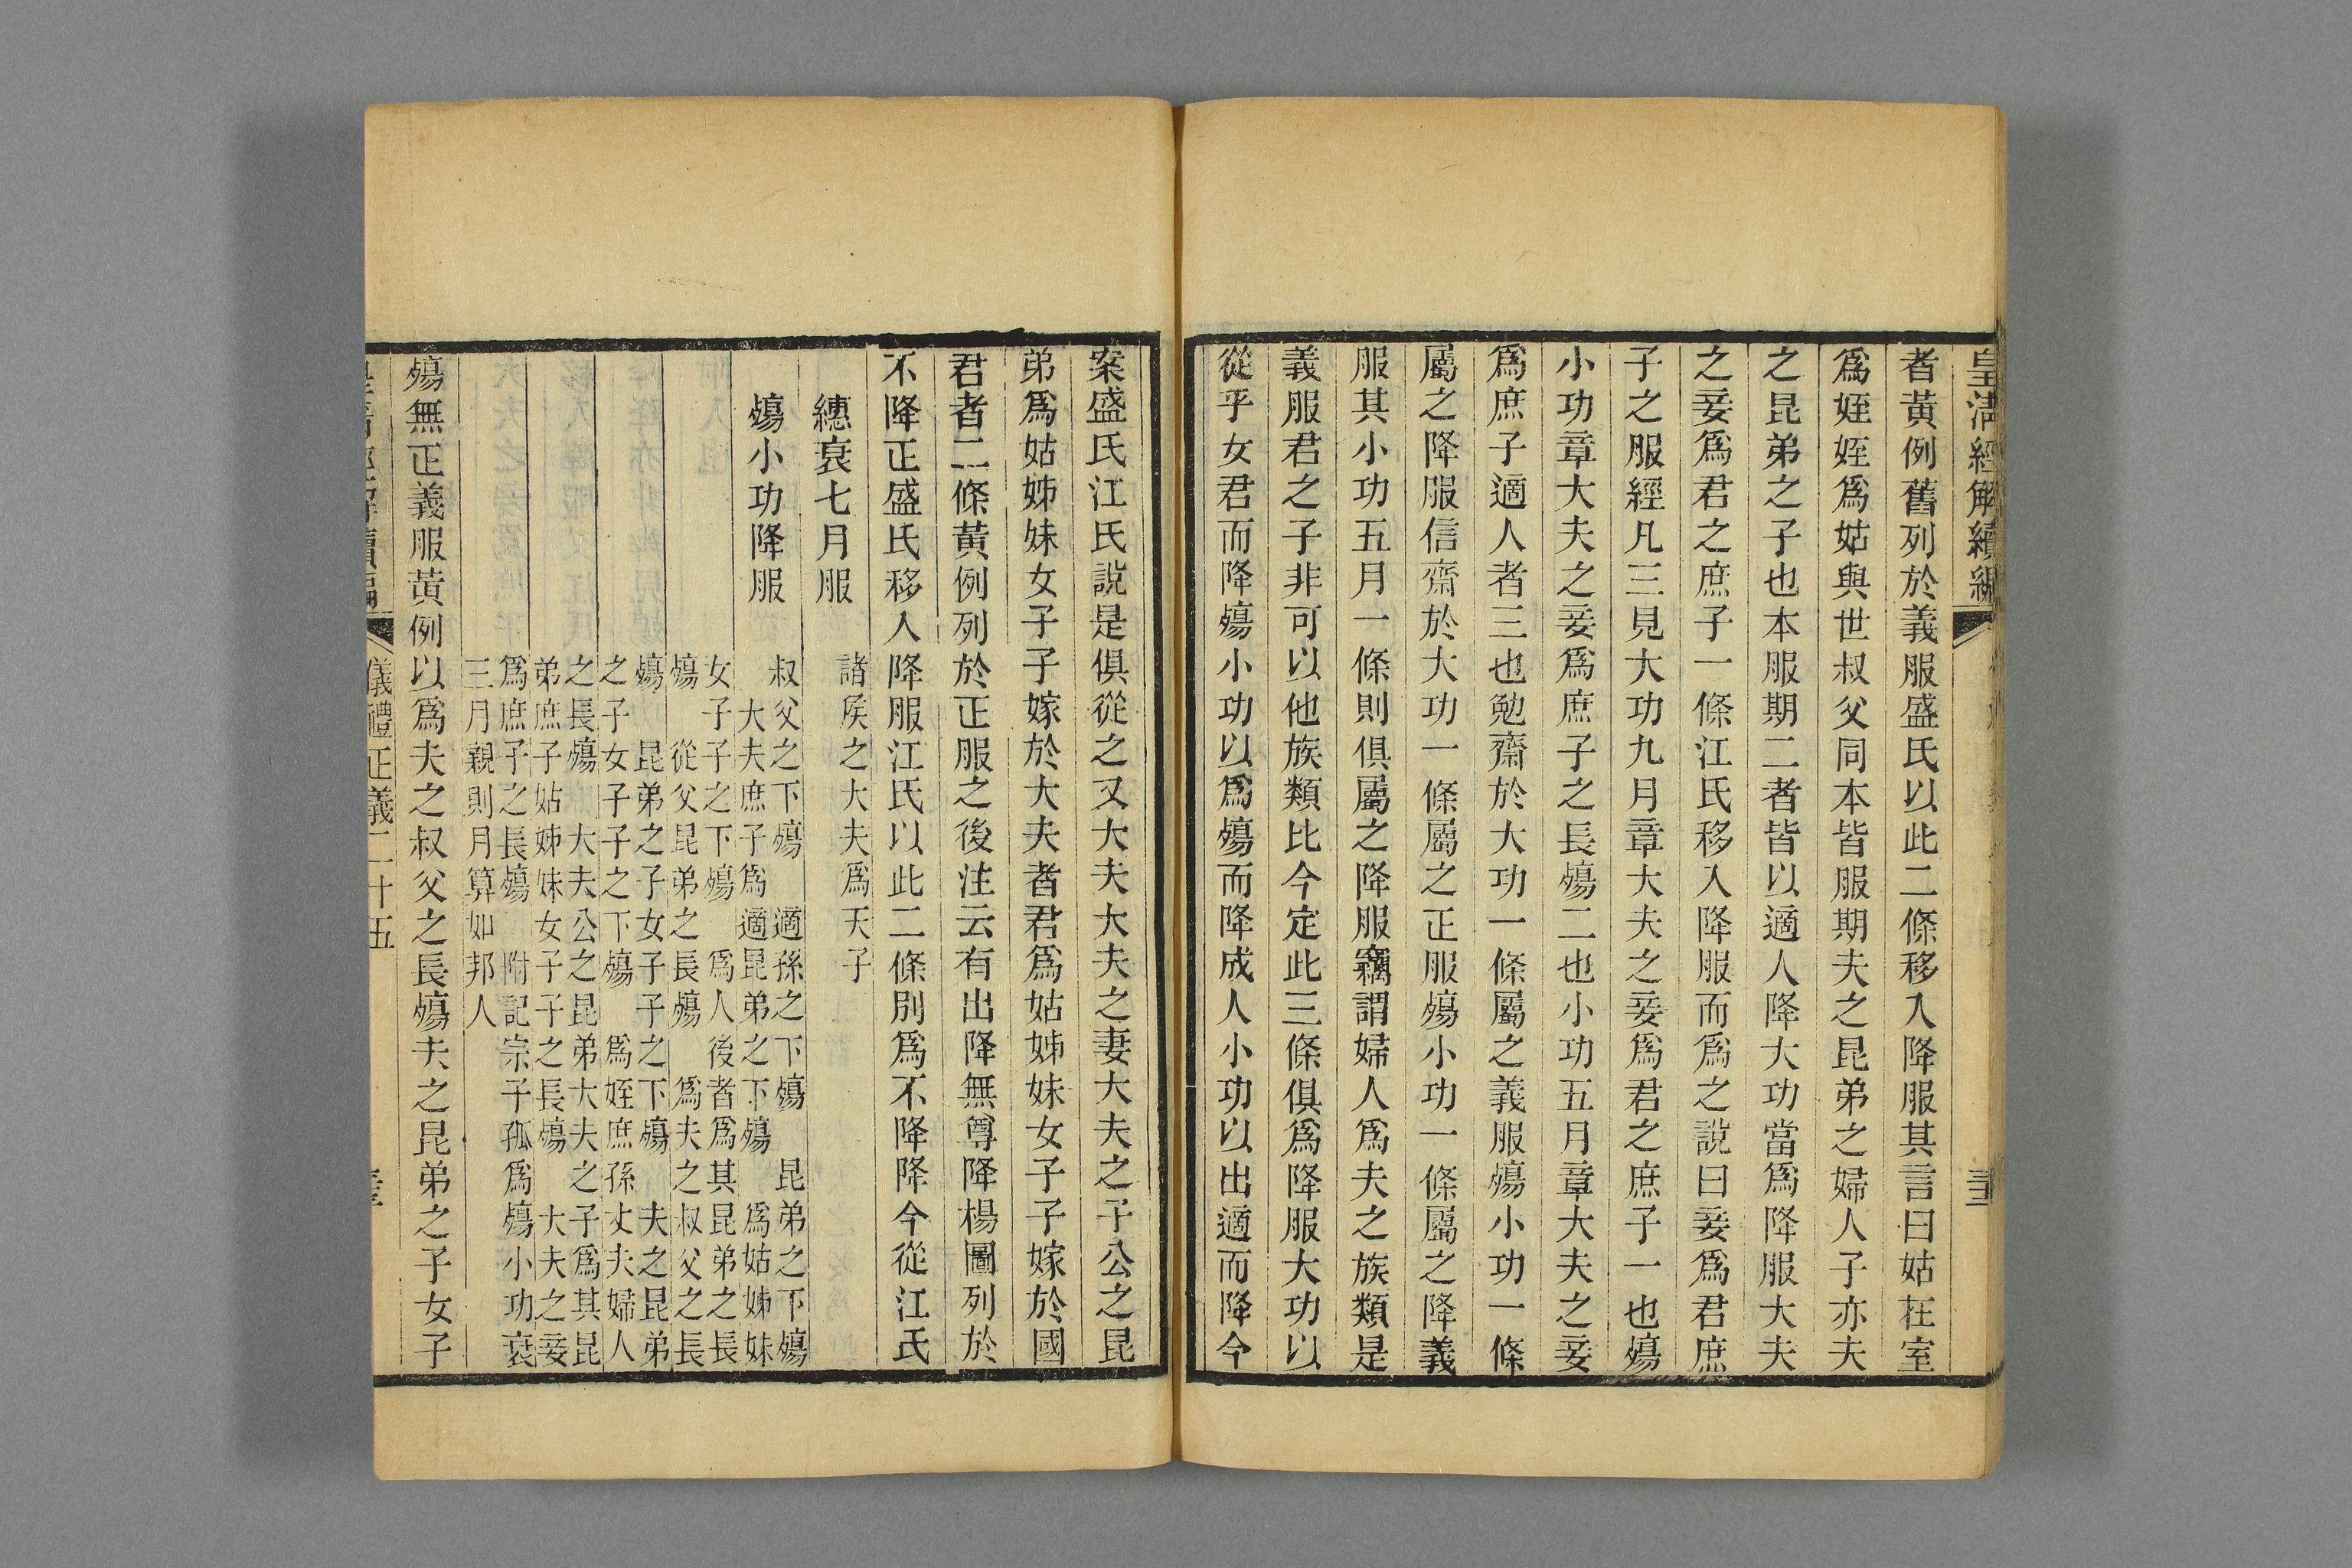 皇清經解續編
者黃例舊列於義服盛氏以此二條移入降服其言曰姑在室
爲姪姪爲姑與世叔父同本皆服期夫之昆弟之婦人子亦夫
之昆弟之子也本服期二者皆以適人降大功當爲降服大夫
之妾爲君之庶子一條江氏移入降服而爲之說曰妾爲君庶
子之服經凡三見大功九月章大夫之妾爲君之庶子一也殤
小功章大夫之妾爲庶子之長殤二也小功五月章大夫之妾
爲庶子適人者三也勉齋於大功一條屬之義服殤小功一條
屬之降服信齋於大功一條屬之正服殤小功一條屬之降義
服其小功五月一條則俱屬之降服竊謂婦人爲夫之族類是
義服君之子非可以他族類比今定此三條俱爲降服大功以
從乎女君而降殤小功以爲殤而降成人小功以出適而降今
案盛氏江氏說是俱從之又大夫大夫之妻大夫之子公之昆
弟爲姑姊妹女子子嫁於大夫者君爲姑姊妹女子子嫁於國
君者二條黃例列於正服之後注云有出降無尊降楊圖列於
不降正盛氏移入降服江氏以此二條別爲不降降今從江氏
繐衰七月服
諸侯之大夫爲天子
殤小功降服
叔父之下殤 適孫之下殤 昆弟之下殤
大夫庶子爲適昆弟之下殤 爲姑姊妹
女子子之下殤 爲人後者爲其昆弟之長
殤 從父昆弟之長殤 爲夫之叔父之長
殤 昆弟之子女子子之下殤 夫之昆弟
之子女子子之下殤 爲姪庶孫丈夫婦人
之長殤 大夫公之昆弟大夫之子爲其昆
弟庶子姑姊妹女子子之長殤 大夫之妾
爲庶子之長殤 附記宗子孤爲殤小功衰
三月親則月算如邦人
殤無正義服黃例以爲夫之叔父之長殤夫之昆弟之子女子
儀禮正義二十五